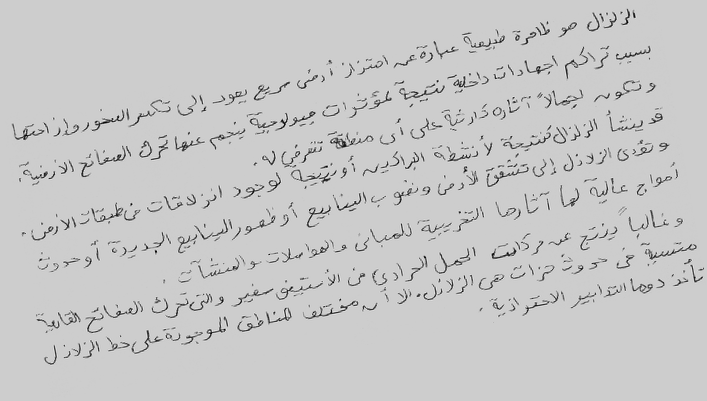 الزلزال هو ظاهرة طبيعية عبارة عن اهتزاز أرضي سريع يعود إلى تكسر الصخور وإزاحتها
بسبب تراكم اجهادات داخلية نتيجة لمؤثرات جيولوجية ينجم عنها تحرك الصفائح الأرضية.
وتكون اجمالاً آثاره كارثية على أي منطقة تتعرض له.
قد ينشأ الزلزال كنتيجة لأنشطة البراكين أو نتيجة لوجود انزلاقات في طبقات الأرض.
وتؤدي الزلازل إلى تشقق الأرض ونضوب الينابيع أو ظهور الينابيع الجديدة أو حدوث
أمواج عالية لها آثارها التخريبية للمباني والمواصلات والمنشآت.
وغالباً ينتج عن حركات الحمل الحراري في الأستينوسفير والتي تحرك الصفائح القارية
متسببة في حدوث هزات هي الزلازل. الا أن مختلف المناطق الموجودة على خط الزلازل
تأخذ دوما التدابير الاحترازية.